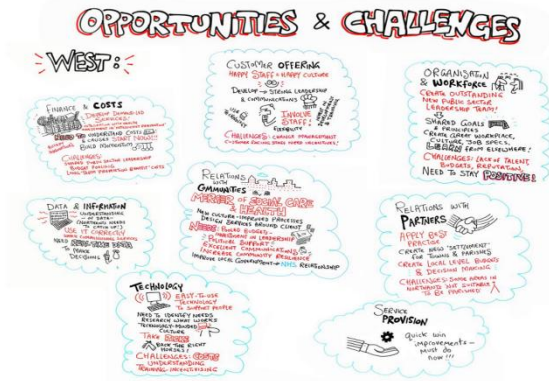 OPPORTUNITIES & CHALLENGES
WEST:
FINANCE & COSTS
DEVELOP DEMAND-LED
SERVICES!
NEED TO UNDERSTAND COSTS
& CAUSES START NOW!!
BUILD MOMENTUM
CHALLENGES:
SHARED PUBLIC SECTOR LEADERSHIP
BUDGET POOLING
LONG-TERM PREVENTION BENEFIT-COSTS
CUSTOMER OFFERING
HAPPY STAFF = HAPPY CULTURE
DEVELOP → STRONG LEADERSHIP
& COMMUNICATIONS
INVOLVE
STAFF!
FLEXIBILITY
CHALLENGES: CHANGE MANAGEMENT
CUSTOMER FACING STAFF NEED INCENTIVES!
ORGANISATION
& WORKFORCE
CREATE OUTSTANDING
NEW PUBLIC SECTOR
LEADERSHIP TEAM!
SHARED GOALS
& PRINCIPLES
CREATE GREAT WORKPLACE,
CULTURE, JOB SPECS,
LEARN FROM ELSEWHERE!
CHALLENGES: LACK OF TALENT
BUDGETS, REPUTATION,
NEED TO STAY POSITIVE!
DATA & INFORMATION
UNDERSTANDING
USE IT CORRECTLY
NEED REAL-TIME DATA
TO MAKE
DECISIONS
RELATIONS
WITH
COMMUNITIES
MERGER OF SOCIAL CARE
& HEALTH
NEW CULTURE - IMPROVED PROCESSES
DESIGN SERVICES AROUND CLIENT
NEEDS: POOLED BUDGETS
INVESTMENT IN LEADERSHIP
MUTUAL SUPPORT!
EXCELLENT COMMUNICATIONS
INCREASE COMMUNITY RESILIENCE
IMPROVE LOCAL GOVERNMENT - NHS RELATIONSHIP
RELATIONS WITH
PARTNERS
APPLY BEST
PRACTISE
CREATE NEW 'SETTLEMENT'
FOR TOWNS & PARISHES
CREATE LOCAL LEVEL BUDGETS
& DECISION MAKING
CHALLENGES: SOME AREAS IN
NORTHANTS NOT SUITABLE
TO BE PARISHED!
TECHNOLOGY
EASY-TO-USE
TECHNOLOGY
TO SUPPORT PEOPLE
NEED TO IDENTIFY NEEDS
RESEARCH WHAT WORKS
TECHNOLOGY-MINDED
CULTURE
TAKE RISKS
BACK THE RIGHT
HORSES!
CHALLENGES: COSTS
UNDERSTANDING
TRAINING, INCENTIVIZING
SERVICE
PROVISION
QUICK WIN
IMPROVEMENTS -
MUST DO
NOW!!!